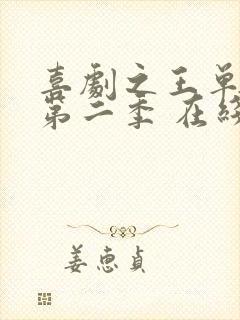 喜劇之王單
第二季 在綫
姜惠貞